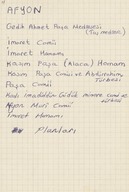 AFYON
Gedik Ahmet Paşa Medresesi
(Taş medrese)
İmaret Camii
İmaret Hamamı
Kasım Paşa (Alaca) Hamam
Kasım Paşa Camii ve Abdürrahim
Türbesi
Paşa Camii
Kadı İmadüddin Güdük minare camii ve
türbesi
Mısri Camii
İmaret Hamamı
Planları